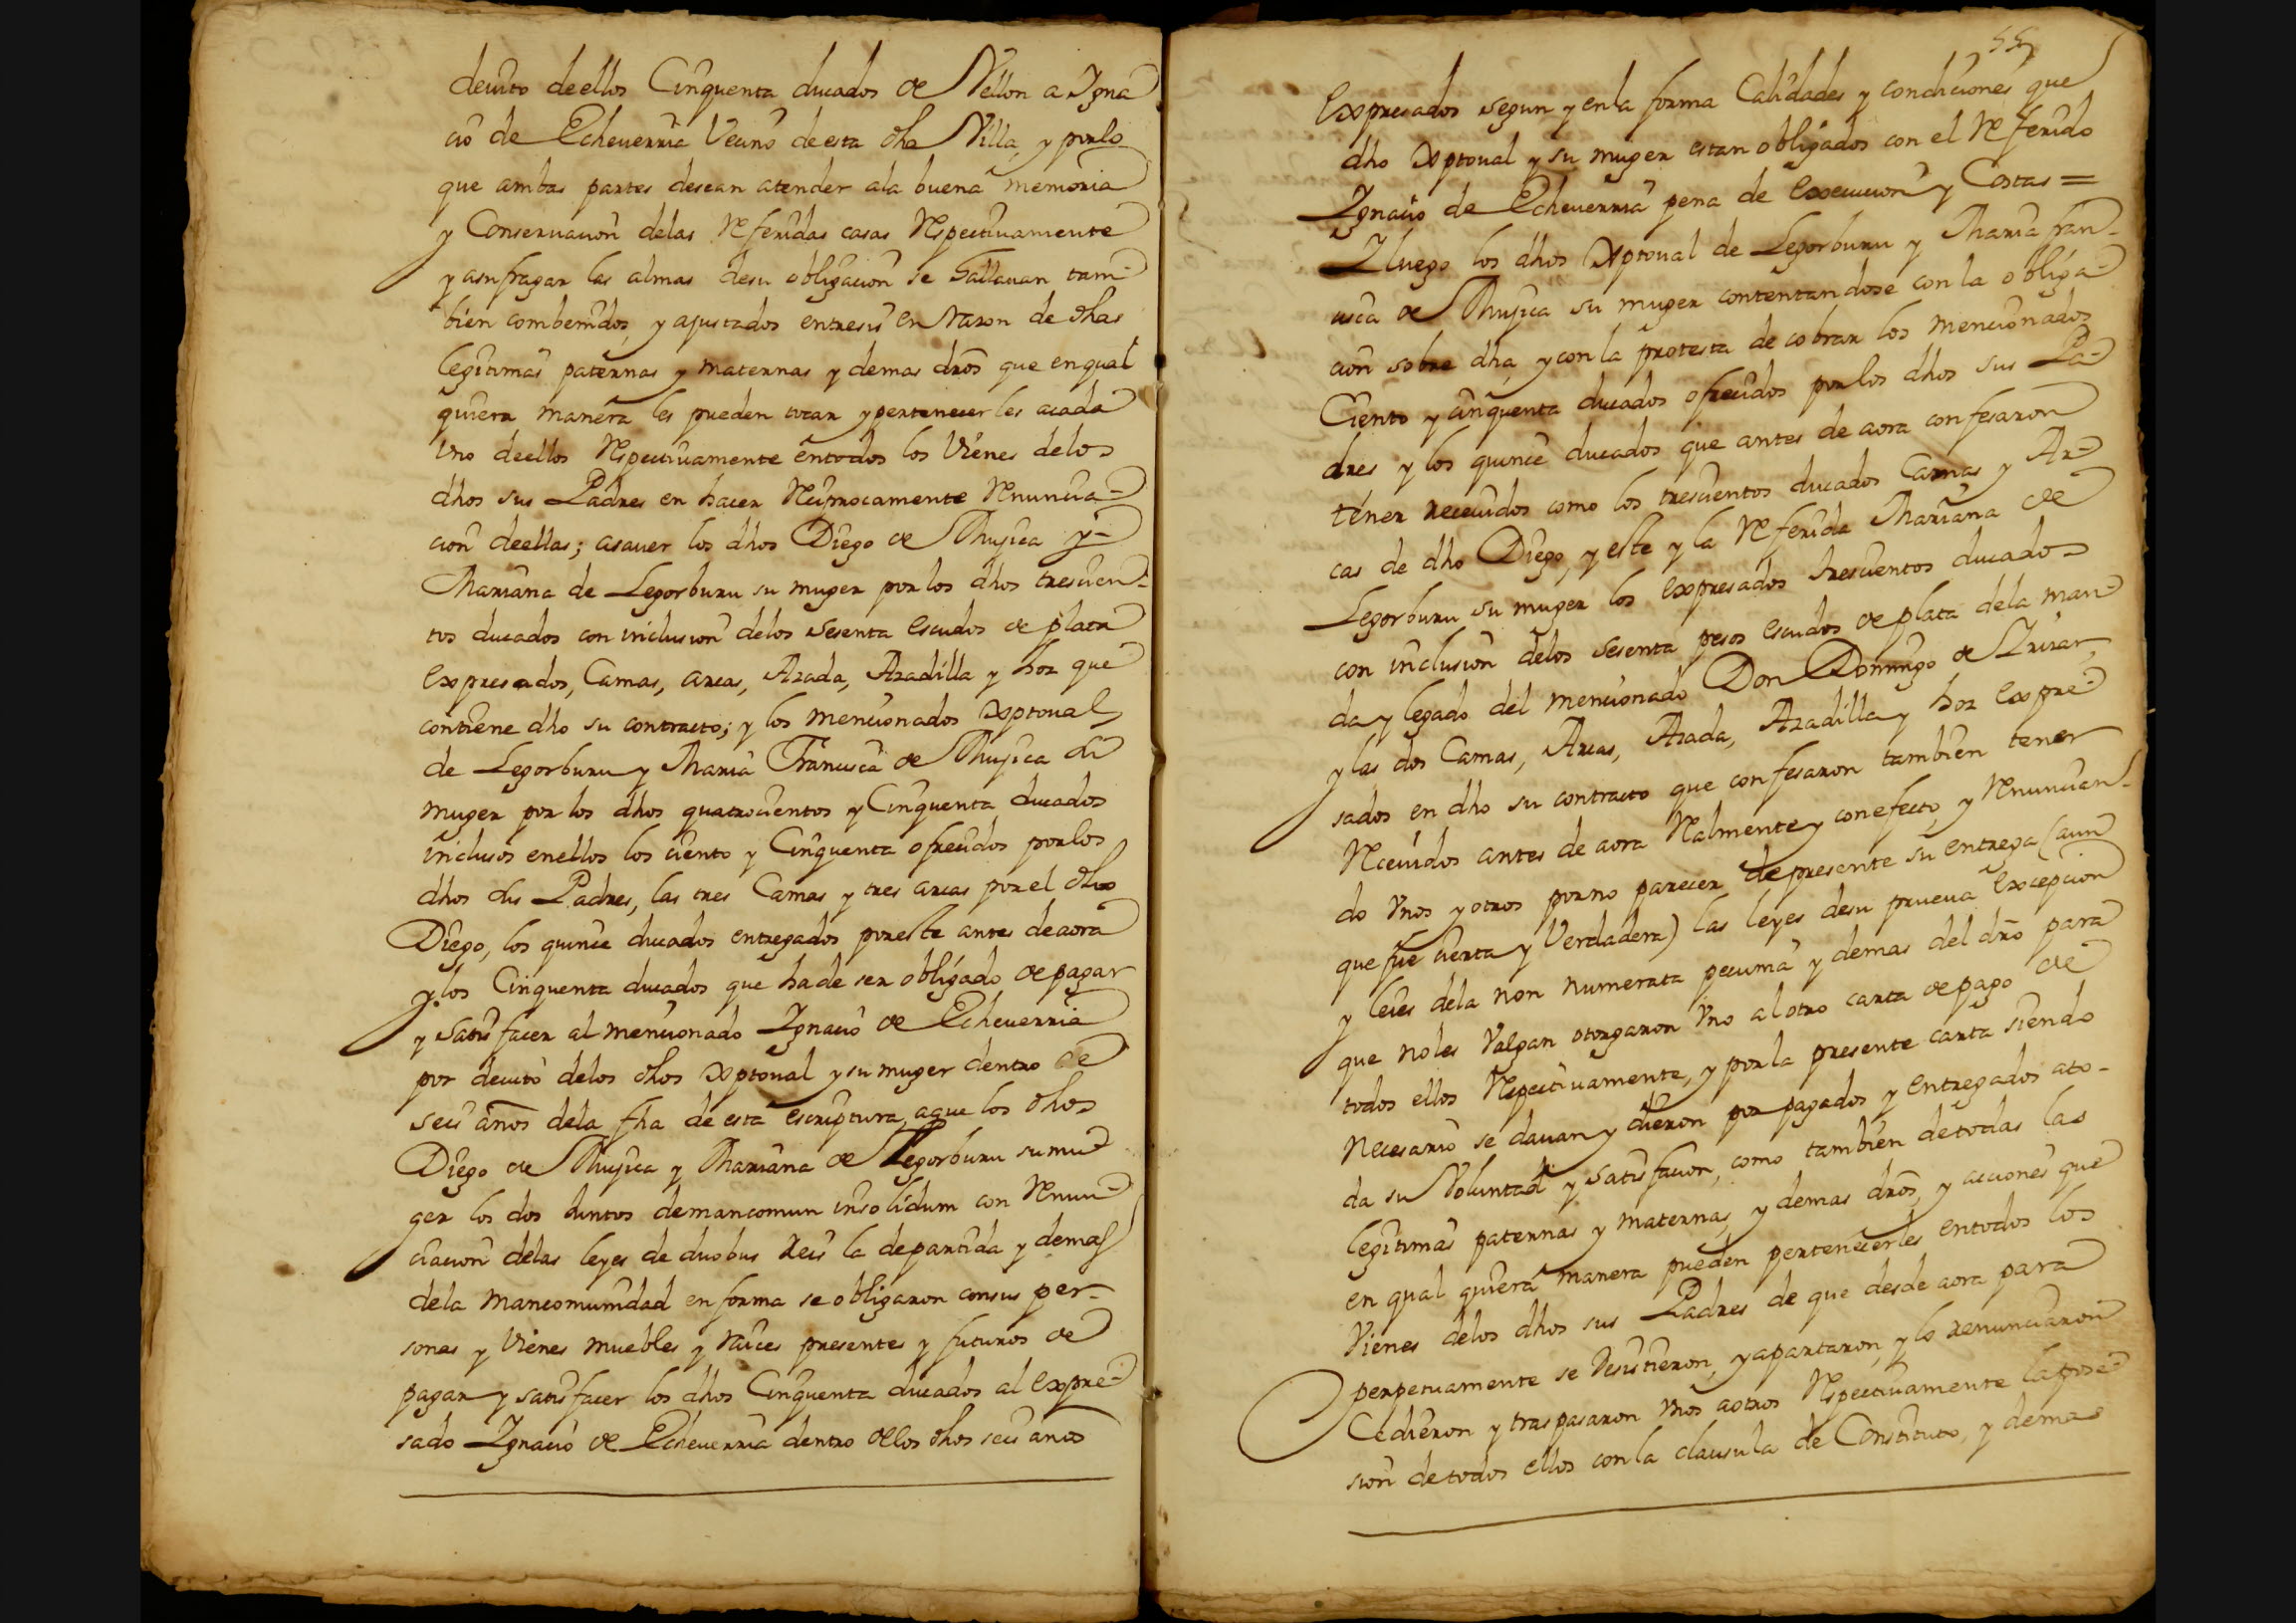 deuito deellos Cinquenta ducados de Vellon a Igna
cio de Echeuerria Vecino de esta dha Villa, y porlo
que ambas partes desean atender ala buena memoria
y Conseruacion delas Referidas casas Respectiuamente
y asufragar las almas desu obligacion se hallauan tam-
bien combenidos, y ajustados entresi en razon de dhas
legitimas paternas y maternas y demas dros que en qual
quiera manera les pueden tocar y pertenecerles acada
Vno deellos Respectiuamente entodos los Vienes delos
dhos sus Padres en hacer Reciprocamente Renuncia-
cion deellas; asauer los dhos Diego de Mujica y-
Mariana de Legorburu su muger por los dhos trescien-
tos ducados con inclusion delos Sesenta escudos de plata
expresados, Camas, arcas, Azada, Azadilla y hoz que
contiene dho su contracto; y los mencionados Xptoual
de Legorburu y Maria Francisca de Mujica su
muger por los dhos quatrocientos y Cinquenta ducados
inclusos enellos los ciento y Cinquenta ofrecidos por los
dhos sus Padres, las tres Camas y tres arcas por el dho
Diego, los quince ducados entregados por este antes de aora
y los Cinquenta ducados que ha de ser obligado de pagar
y satisfacer al mencionado Ignacio de Echeuerria
por deuito delos dhos Xptoual y su muger dentro de
seis años dela fha de esta escriptura, aque los dhos
Diego de Mujica y Mariana de Legorburu su mu
ger los dos Juntos demancomun insolidum con Renun
ciacion delas leyes de duobus Reis la departida y demas
dela mancomunidad en forma se obligaron consus per-
sonas y Vienes muebles y raices presentes y futuros de
pagar y satisfacer los dhos Cinquenta ducados al expre
sado Ignacio de Echeuerria dentro delos dhos seis años
55
expresados segun y enla forma Calidades y condiciones que
dho Xptoual y su muger estan obligados con el Referido
Ignacio de Echeuerria pena de execucion y Costas =
I luego los dhos Xptoual de Legorburu y Maria fran-
cisca de Mujica su muger contentandose con la obliga-
cion sobre dha, y con la protesta de cobrar los mencionados
Ciento y cinquenta ducados ofrecidos por los dhos sus Pa-
dres y los quince ducados que antes de aora confesaron
tener receuidos como los trescientos ducados Camas y Ar-
cas de dho Diego, y este y la Referida Mariana de
Legorburu su muger los expresados trescientos ducados
con inclusion delos sesenta pesos escudos de plata dela man
da y legado del mencionado Don Domingo de Irizar,
y las dos Camas, Arcas, Azada, Azadilla y hoz expre
sados en dho su contracto que confesaron tambien tener
Receuidos antes de aora Realmente y conefecto, y Renuncian-
do Vnos y otros por no parecer de presente su entrega (aun
que fue cierta y Verdadera) las leyes desu prueua excepcion
y leies dela non numerata pecunia y demas del dro para
que noles Valgan otorgaron Vno alotro carta de pago de
todos ellos Respectiuamente, y por la presente carta siendo
necesario se dauan y dieron por pagados y entregados ato-
da su Voluntad y satisfacion, como tambien detodas las
legitimas paternas y maternas, y demas dros, y acciones que
en qual quiera manera pueden pertenecerles entodos los
Vienes delos dhos sus Padres de que desde aora para
perpetuamente se desistieron, y apartaron, y lo renunciaron
Cedieron y traspasaron Vnos aotros Respectiuamente la pose-
sion detodos ellos con la clausula de Constituto, y demas